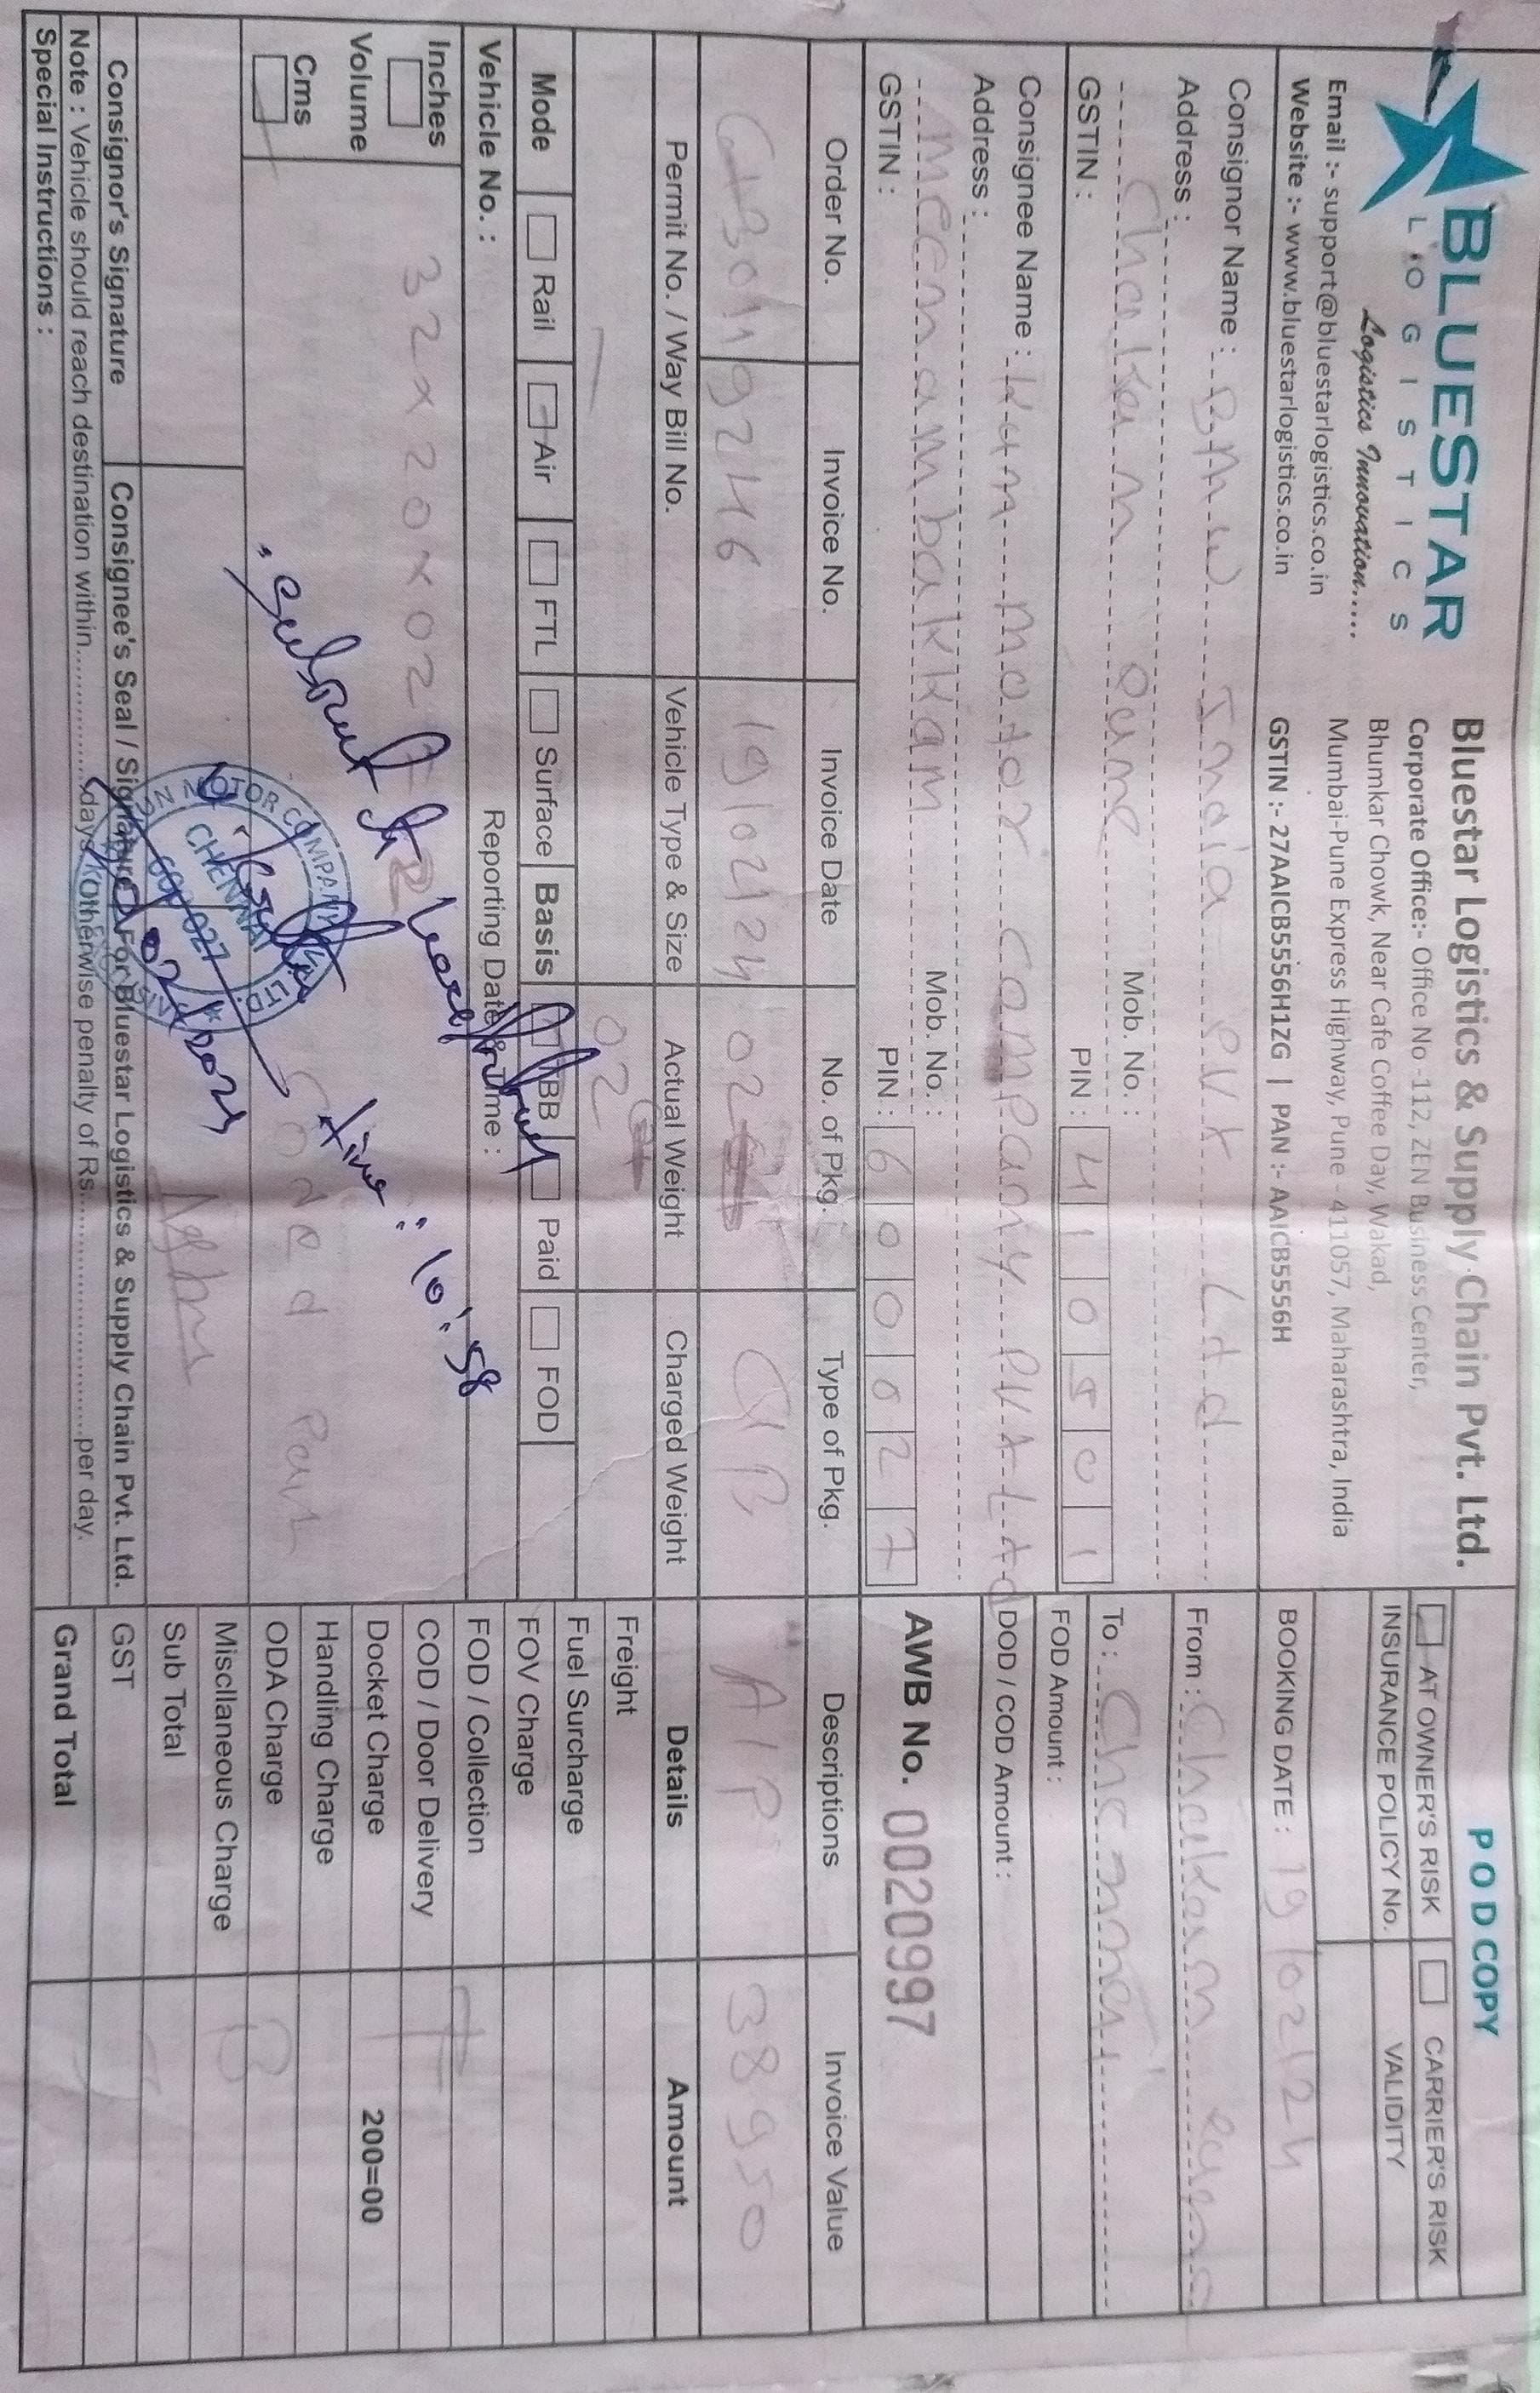 BLUESTAR
LOGISTICS
Logistics Innovation.....
Email :- support@bluestarlogistics.co.in
Website :- www.bluestarlogistics.co.in
Bluestar Logistics & Supply Chain Pvt. Ltd.
Corporate Office:- Office No -112, ZEN Business Center,
Bhumkar Chowk, Near Cafe Coffee Day, Wakad,
Mumbai-Pune Express Highway, Pune - 411057, Maharashtra, India
GSTIN :- 27AAICB5556H1ZG | PAN :- AAICB5556H
POD COPY
AT OWNER'S RISK CARRIER'S RISK
INSURANCE POLICY No. VALIDITY
BOOKING DATE : 19/02/24
Consignor Name : BMW India PVt Ltd
Address :
Chakan Pune Mob. No. :
GSTIN : PIN : 410501
From : Chakan
To : Chennai
FOD Amount :
DOD / COD Amount :
Consignee Name : Kun motor company PVt Ltd
Address :
meenambakkam Mob. No. :
GSTIN : PIN : 600027
AWB No. 0020997
Order No. Invoice No. Invoice Date No. of Pkg. Type of Pkg. Descriptions Invoice Value
19/02/24 02 A/P 38950
Permit No. / Way Bill No. Vehicle Type & Size Actual Weight Charged Weight Details Amount
02
Freight
Fuel Surcharge
FOV Charge
FOD / Collection
COD / Door Delivery
Docket Charge 200=00
Handling Charge
ODA Charge
Miscllaneous Charge
Sub Total
GST
Grand Total
Mode Rail Air FTL Surface Basis TBB Paid FOD
Vehicle No. : Reporting Date & Time :
Inches
Volume
Cms
32x20x02
time: 10:58
MOTOR COMPANY LTD.
CHENNAI
600 027
02/2024
Consignor's Signature Consignee's Seal / Signature For Bluestar Logistics & Supply Chain Pvt. Ltd.
Note : Vehicle should reach destination within...............days. Otherwise penalty of Rs..............................per day.
Special Instructions :